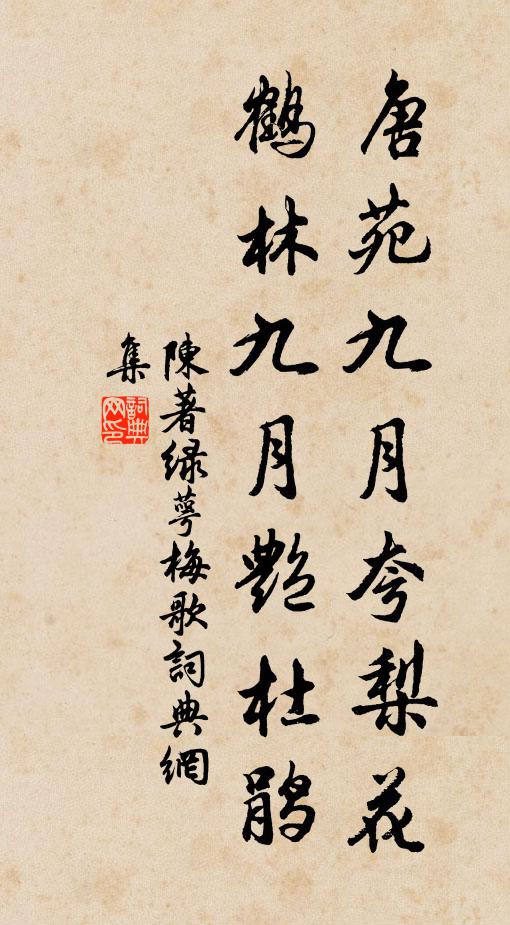 唐苑九月夸梨花
鶴林九月艷杜鹃
陳著緑萼梅歌詞典網
集
詞典網印